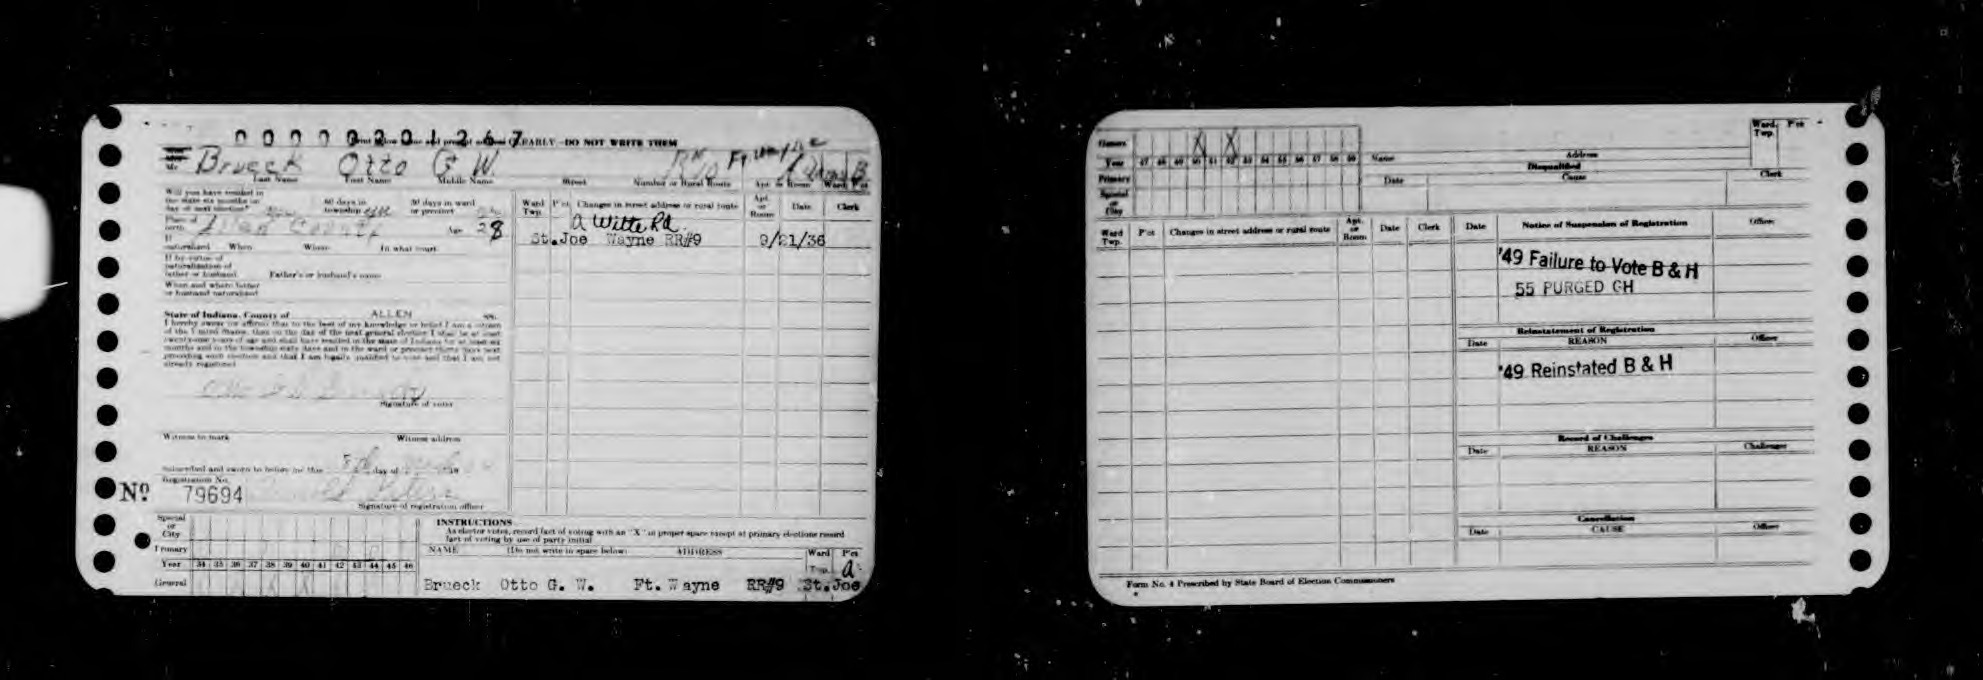 00000201267
EARLY - DO NOT WRITE THEM
Mr Brueck Otto G. W. Ft Wayne
Last Name First Name Middle Name Street Number or Rural Route Apt. or Room Ward Pct
Will you have resided in
the state six months on
day of next election? 60 days in
township 30 days in ward
or precinct
Place of
birth Allen County Age 28
If
naturalized When Where In what court
If by virtue of
naturalization of
father or husband Father's or husband's name
When and where father
or husband naturalized
State of Indiana, County of ALLEN ss.
I hereby swear (or affirm) that to the best of my knowledge or belief I am a citizen
of the United States, that on the day of the next general election I shall be at least
twenty-one years of age and shall have resided in the state of Indiana for at least six
months and in the township sixty days and in the ward or precinct thirty days next
preceding such election and that I am legally qualified to vote and that I am not
already registered
Signature of voter
Witness to mark Witness address
Subscribed and sworn to before me this 8th day of 19
Registration No.
No 79694
Signature of registration officer
Ward
Twp. Pct Changes in street address or rural route Apt.
or
Room Date Clerk
A Witte Rd.
St.Joe Wayne RR#9 9/21/36
Special
or
City
Primary
Year 34 35 36 37 38 39 40 41 42 43 44 45 46
General X X
INSTRUCTIONS
As elector votes, record fact of voting with an "X" in proper space except at primary elections record
fact of voting by use of party initial
NAME (Do not write in space below) ADDRESS Ward Pct
Twp. A
Brueck Otto G. W. Ft. Wayne RR#9 St.Joe
General X X
Year 47 48 49 50 51 52 53 54 55 56 57 58 59
Primary
Special
or
City
Name Address
Ward
Twp. Pct
Disqualified
Date Cause Clerk
Ward
Twp. Pct Changes in street address or rural route Apt.
or
Room Date Clerk
Date Notice of Suspension of Registration Officer
'49 Failure to Vote B & H
55 PURGED GH
Reinstatement of Registration
Date REASON Officer
'49 Reinstated B & H
Record of Challenges
Date REASON Challenger
Cancellation
Date CAUSE Officer
Form No. 4 Prescribed by State Board of Election Commissioners